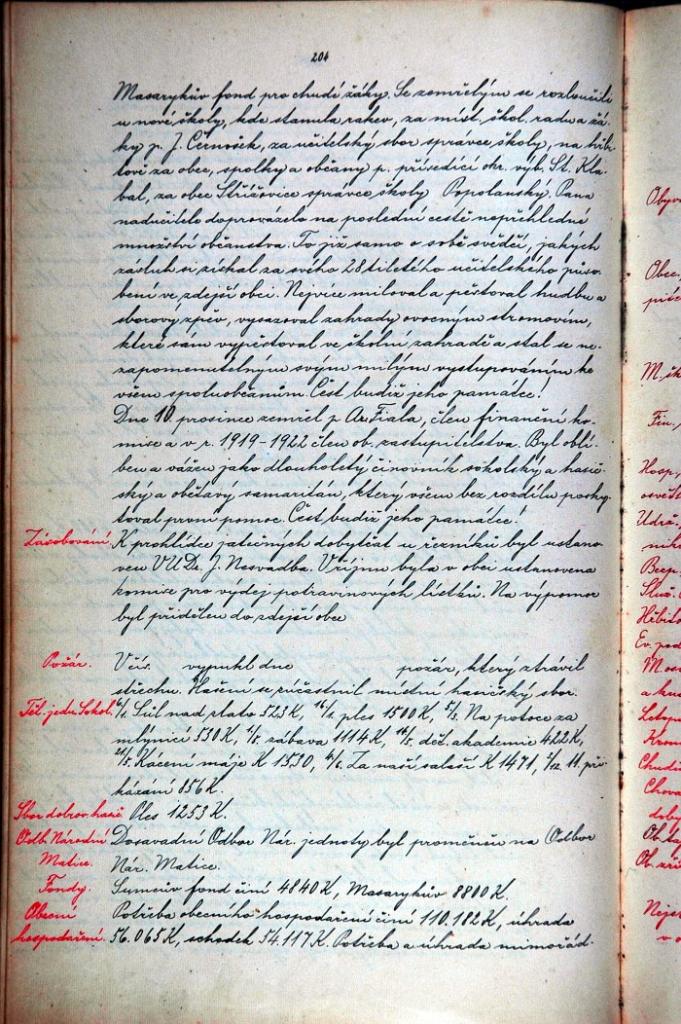 204
Masarykův fond pro chudé žáky. Se zemřelým se rozloučili
u nové školy, kde stanula rakev, za míst. škol. radu a žá-
ky p. J. Černošek, za učitelský sbor správce školy, na hřbi-
tově za obec, spolky a občany p. přísedící okr. výb. St. Kla-
bal, za obec Střížovice správce školy Popolanský. Pana
nadučitele doprovázelo na poslední cestě nepřehledné
množství občanstva. To již samo o sobě svědčí, jakých
zásluh si získal za svého 28 tiletého učitelského půso-
bení ve zdejší obci. Nejvíce miloval a pěstoval hudbu a
sborový zpěv, vysazoval zahrady ovocným stromovím,
které sám vypěstoval ve školní zahradě a stal se ne-
zapomenutelným svým milým vystupováním ke
všem spoluobčanům. Čest budiž jeho památce!
Dne 10. prosince zemřel p. Ant. Fiala, člen finanční ko-
mise a v r. 1919-1922 člen ob. zastupitelstva. Byl oblí-
ben a vážen jako dlouholetý činovník sokolský a hasič-
ský a obětavý samaritán, který všem bez rozdílu posky-
toval první pomoc. Čest budiž jeho památce!
Zásobování. K prohlídce jatečných dobytčat u řezníků byl ustano-
ven VUDr. J. Nesvadba. V říjnu byla v obci ustanovena
komise pro výdej potravinových lístků. Na výpomoc
byl přidělen do zdejší obce
Požár. V čís. vypukl dne požár, který ztrávil
střechu. Hašení se súčastnil místní hasičský sbor.
Těl. jedn. Sokol. 6/1. Sůl nad zlato 523 K, 16/1. ples 1500 K, 5/3. Na potoce za
mlýnicí 530 K, zábava 1114 K, dět. akademie 422 K,
Kácení máje K 1530, Za naší salaší K 1471, 11. při-
kázání 856 K.
Sbor dobrov. hasič. Ples 1253 K.
Odb. Národní Dosavadní Odbor Nár. jednoty byl proměněn na Odbor
Matice. Nár. Matice.
Fondy. Sumcův fond činí 4840 K, Masarykův 8800 K.
Obecní Potřeba obecního hospodaření činí 110.182 K, úhrada
hospodaření. 56.065 K, schodek 54.117 K. Potřeba a úhrada mimořád-
Obec.
M. šk
Fin.
Hosp.
osvět
Udrž.
Bezp.
Hřbito
Ev. po
Letop
Kron
Chudi
Chova
doby
Nejs